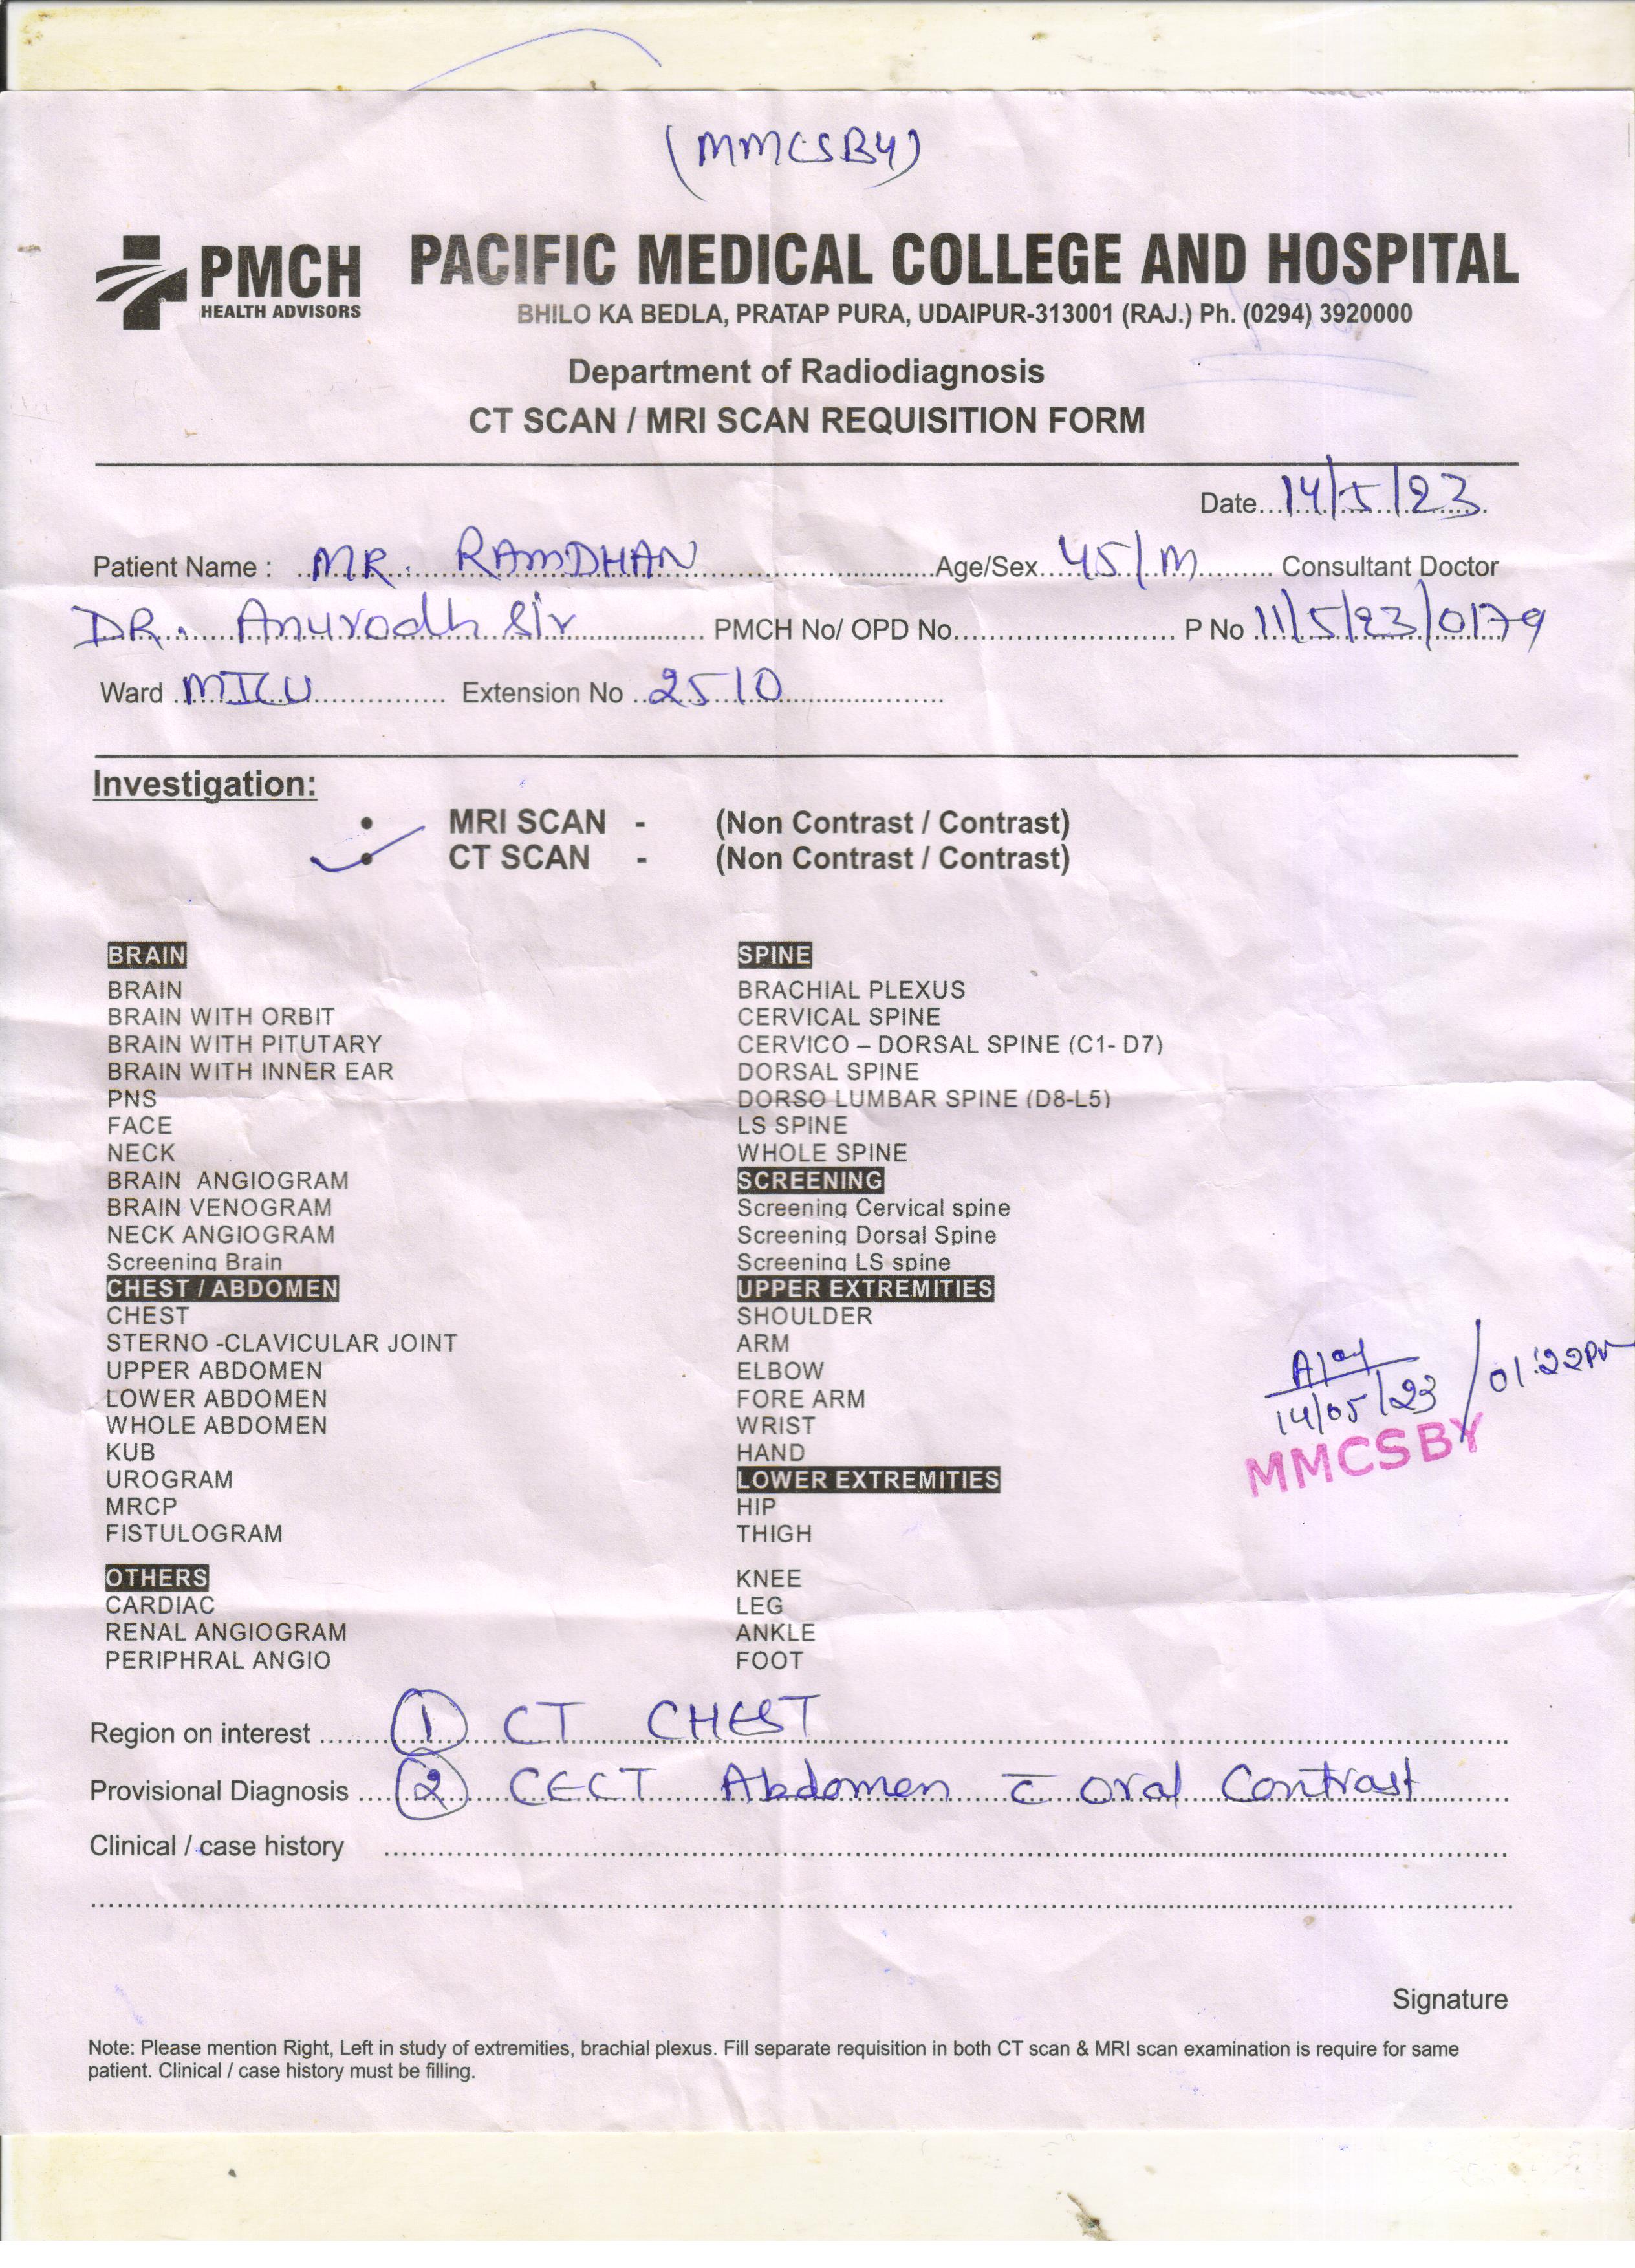 (MMCSBY)
PMCH
HEALTH ADVISORS
PACIFIC MEDICAL COLLEGE AND HOSPITAL
BHILO KA BEDLA, PRATAP PURA, UDAIPUR-313001 (RAJ.) Ph. (0294) 3920000
Department of Radiodiagnosis
CT SCAN / MRI SCAN REQUISITION FORM
Date 14/5/23
Patient Name : MR. RAMDHAN Age/Sex 45/M Consultant Doctor
DR. Anurodh Sir PMCH No/ OPD No. P No 11/5/23/0179
Ward MICU Extension No 2510
Investigation:
• MRI SCAN - (Non Contrast / Contrast)
• CT SCAN - (Non Contrast / Contrast)
BRAIN
BRAIN
BRAIN WITH ORBIT
BRAIN WITH PITUTARY
BRAIN WITH INNER EAR
PNS
FACE
NECK
BRAIN ANGIOGRAM
BRAIN VENOGRAM
NECK ANGIOGRAM
Screening Brain
CHEST / ABDOMEN
CHEST
STERNO -CLAVICULAR JOINT
UPPER ABDOMEN
LOWER ABDOMEN
WHOLE ABDOMEN
KUB
UROGRAM
MRCP
FISTULOGRAM
OTHERS
CARDIAC
RENAL ANGIOGRAM
PERIPHRAL ANGIO
SPINE
BRACHIAL PLEXUS
CERVICAL SPINE
CERVICO – DORSAL SPINE (C1- D7)
DORSAL SPINE
DORSO LUMBAR SPINE (D8-L5)
LS SPINE
WHOLE SPINE
SCREENING
Screening Cervical spine
Screening Dorsal Spine
Screening LS spine
UPPER EXTREMITIES
SHOULDER
ARM
ELBOW
FORE ARM
WRIST
HAND
LOWER EXTREMITIES
HIP
THIGH
KNEE
LEG
ANKLE
FOOT
14/05/23 / 01:22PM
MMCSBY
Region on interest 1 CT CHEST
Provisional Diagnosis 2 CECT Abdomen c̄ oral Contrast
Clinical / case history
Signature
Note: Please mention Right, Left in study of extremities, brachial plexus. Fill separate requisition in both CT scan & MRI scan examination is require for same
patient. Clinical / case history must be filling.